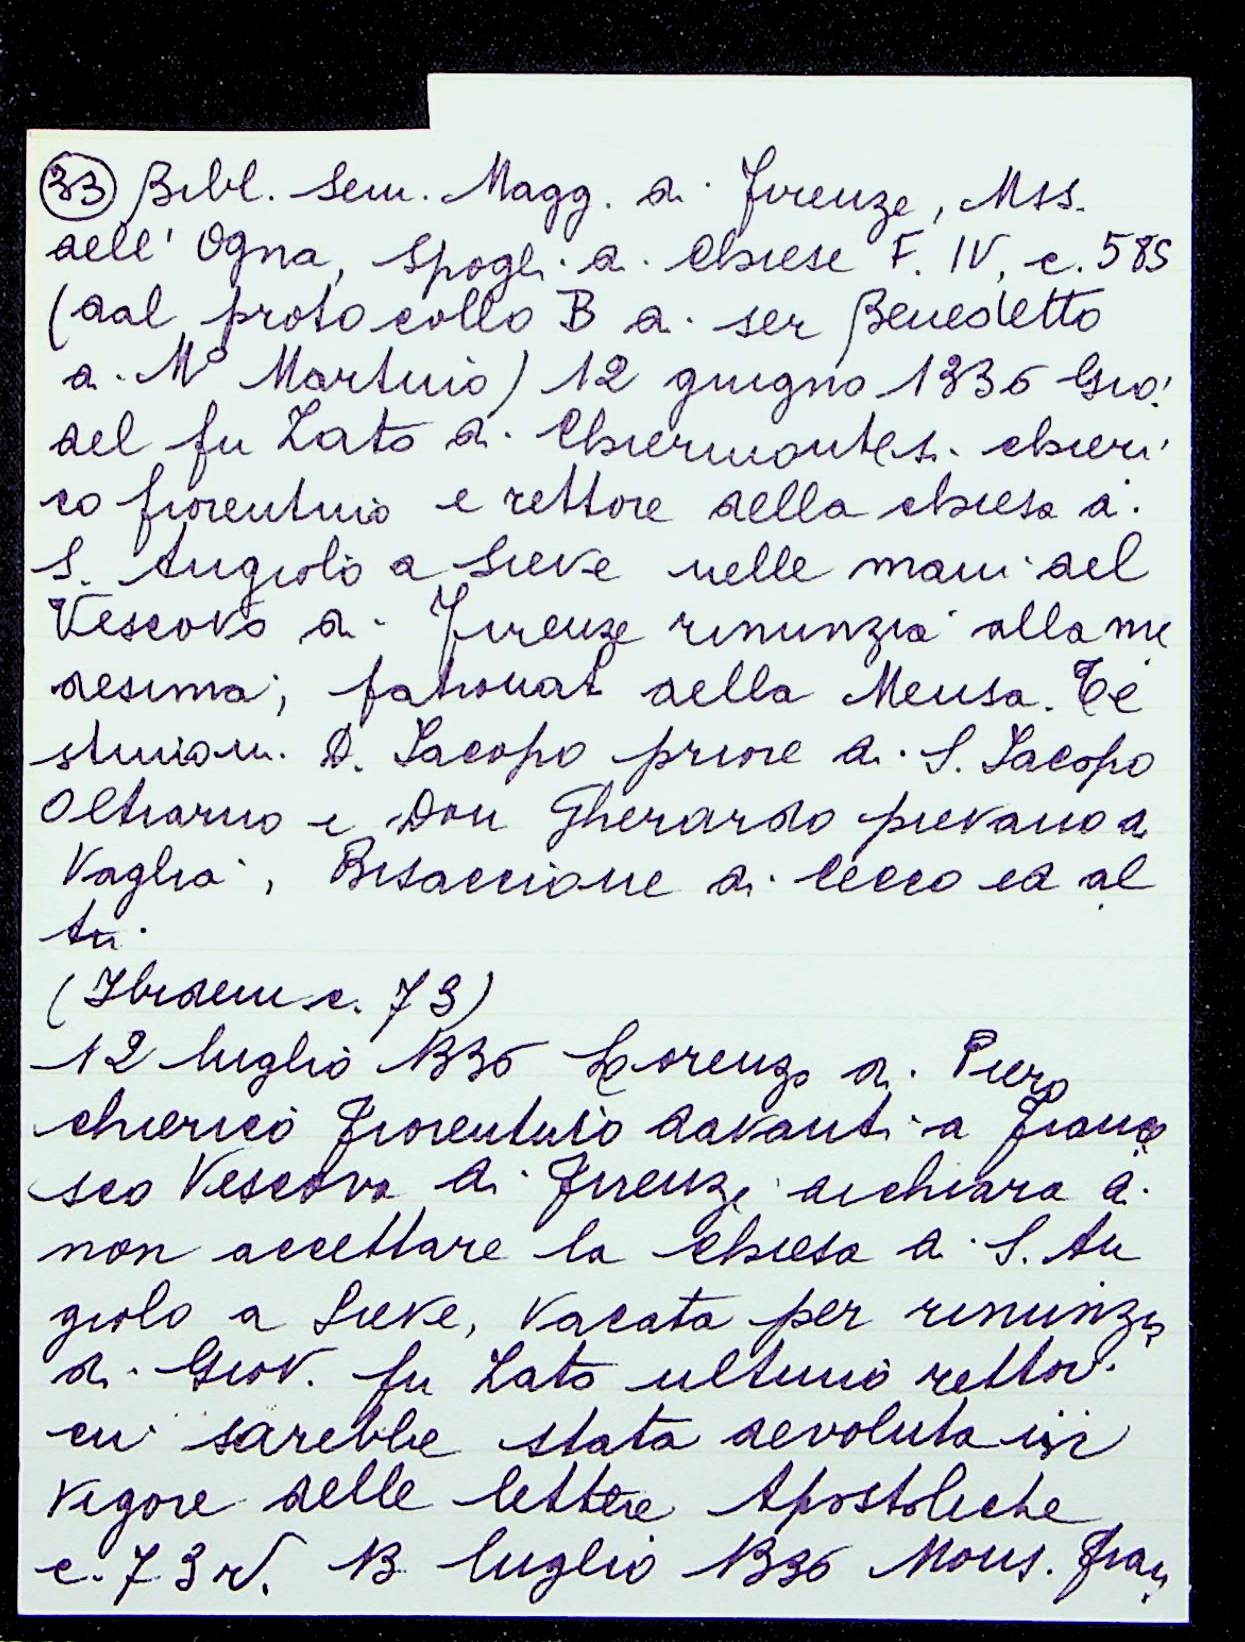 (33) Bibl. Sem. Magg. di Firenze, Mss.
dell' Ogna, Spogli di Chiese F. IV, c. 585
(dal protocollo B di ser Benedetto
di M° Martino) 12 giugno 1336 Gio:
del fu Lato di Chiermontesi chieri
co fiorentino e rettore della chiesa di
S. Angiolo a Sieve nelle mani del
Vescovo di Firenze rinunzia alla me
desima; patronat della Mensa. Te
stimoni. D. Iacopo priore di S. Iacopo
Oltrarno e Don Gherardo pievano a
Vaglia, Bisaccione di Cecco ed al
tri.
(Ibidem c. 73)
12 luglio 1336 Lorenzo di Piero
chierico Fiorentino davanti a France
sco Vescovo di Firenze dichiara di
non accettare la Chiesa di S. An
giolo a Sieve, vacata per rinunzia
di Giov. fu Lato ultimo rettor.
cui sarebbe stata devoluta in
vigore delle lettere Apostoliche
c. 73v. 13 luglio 1336 Mons. Fran